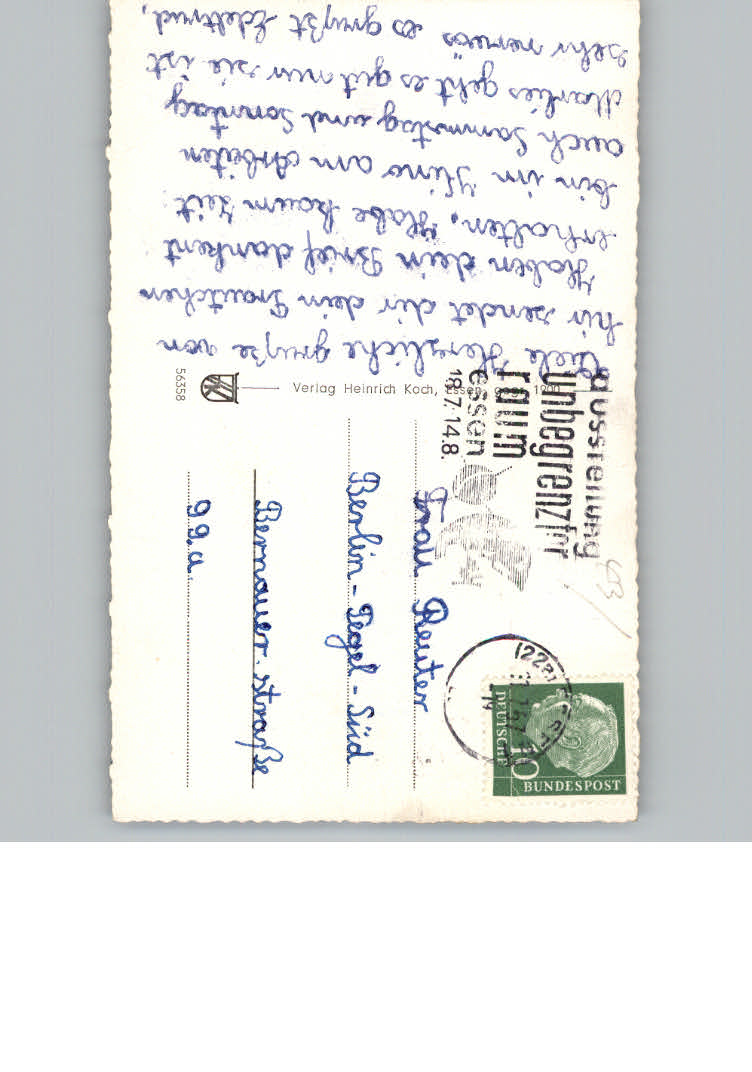 Viele Herzliche grüße von
hir sendet dir dein Trautchen
Haben dein Brief dankent
erhalten, Habe kaum zeit
bin im Kino am Arbeiten
auch Sammstag und Sonntag
Marlies geht es gut nur sie ist
sehr nerwös es grüßt Edeltrud,
56358
Verlag Heinrich Koch, Essen, gegr. 1900
ausstellung
unbegrenzter
raum
essen
18.7.-14.8.
Frau Reuter
Berlin-Tegel-Süd
Bernauer-straße
99.a.
(22a)
DEUTSCHE
BUNDESPOST
10